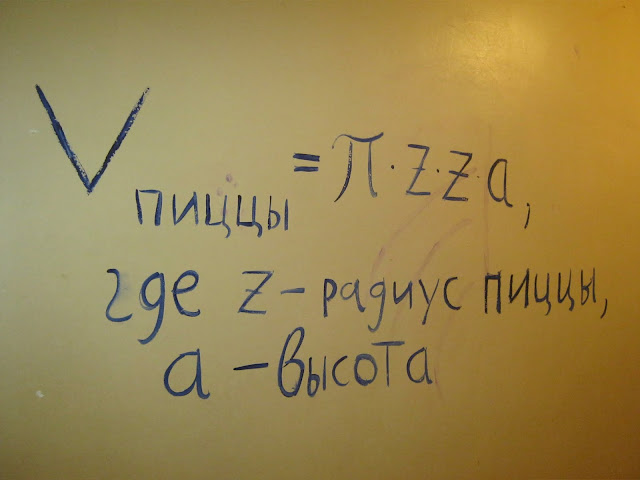 V пиццы = π · z · z · a,
где z – радиус пиццы,
a – высота